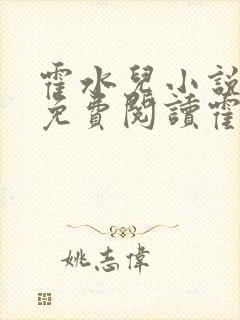 霍水兒小說
免費閱讀霍
姚志偉